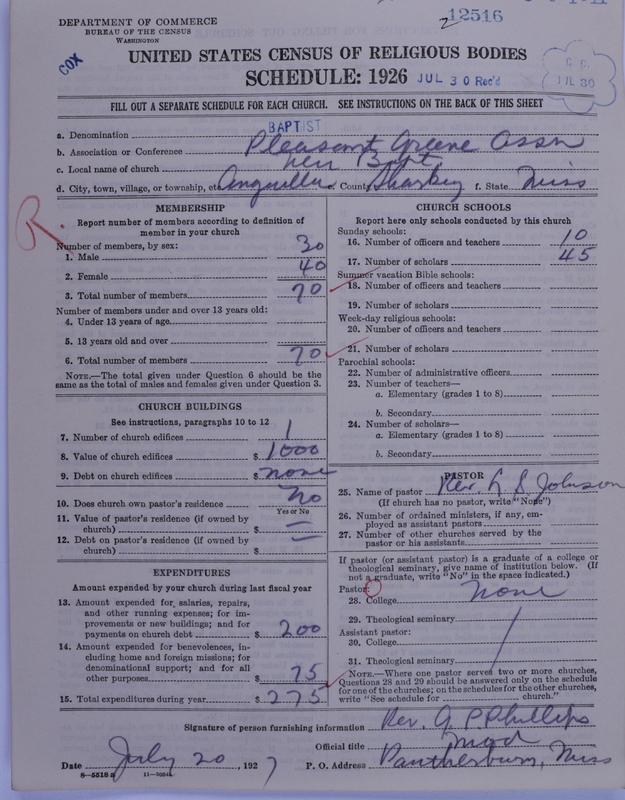 12516
DEPARTMENT OF COMMERCE
BUREAU OF THE CENSUS
WASHINGTON
COX
UNITED STATES CENSUS OF RELIGIOUS BODIES
SCHEDULE: 1926 JUL 30 Rec'd
JUL 30
FILL OUT A SEPARATE SCHEDULE FOR EACH CHURCH. SEE INSTRUCTIONS ON THE BACK OF THIS SHEET
a. Denomination BAPTIST
b. Association or Conference Pleasant Greene Assn
c. Local name of church New Bapt.
d. City, town, village, or township, etc. Anguilla e. County Sharkey f. State Miss
R.
MEMBERSHIP
Report number of members according to definition of
member in your church
Number of members, by sex:
1. Male 30
2. Female 40
3. Total number of members 70
Number of members under and over 13 years old:
4. Under 13 years of age
5. 13 years old and over
6. Total number of members 70
NOTE.—The total given under Question 6 should be
same as the total of males and females given under Question 3.
CHURCH BUILDINGS
See instructions, paragraphs 10 to 12
7. Number of church edifices 1
8. Value of church edifices $ 1000
9. Debt on church edifices $ none
10. Does church own pastor's residence No
Yes or No
11. Value of pastor's residence (if owned by
church) $ —
12. Debt on pastor's residence (if owned by
church) $ —
EXPENDITURES
Amount expended by your church during last fiscal year
13. Amount expended for salaries, repairs,
and other running expenses; for im-
provements or new buildings; and for
payments on church debt $ 200
14. Amount expended for benevolences, in-
cluding home and foreign missions; for
denominational support; and for all
other purposes $ 75
15. Total expenditures during year $ 275
CHURCH SCHOOLS
Report here only schools conducted by this church
Sunday schools:
16. Number of officers and teachers 10
17. Number of scholars 45
Summer vacation Bible schools:
18. Number of officers and teachers
19. Number of scholars
Week-day religious schools:
20. Number of officers and teachers
21. Number of scholars
Parochial schools:
22. Number of administrative officers
23. Number of teachers—
a. Elementary (grades 1 to 8)
b. Secondary
24. Number of scholars—
a. Elementary (grades 1 to 8)
b. Secondary
PASTOR
25. Name of pastor Rev. L. S. Johnson
(If church has no pastor, write "None")
26. Number of ordained ministers, if any, em-
ployed as assistant pastors
27. Number of other churches served by the
pastor or his assistants
If pastor (or assistant pastor) is a graduate of a college or
theological seminary, give name of institution below. (If
not a graduate, write "No" in the space indicated.)
Pastor:
28. College none
29. Theological seminary
Assistant pastor:
30. College
31. Theological seminary
NOTE.—Where one pastor serves two or more churches,
Questions 28 and 29 should be answered only on the schedule
for one of the churches; on the schedules for the other churches,
write "See schedule for church."
Signature of person furnishing information Rev. G. P. Phillips
Official title Mod
Date July 20, 1927 P. O. Address Pantherburn, Miss
8—5518a